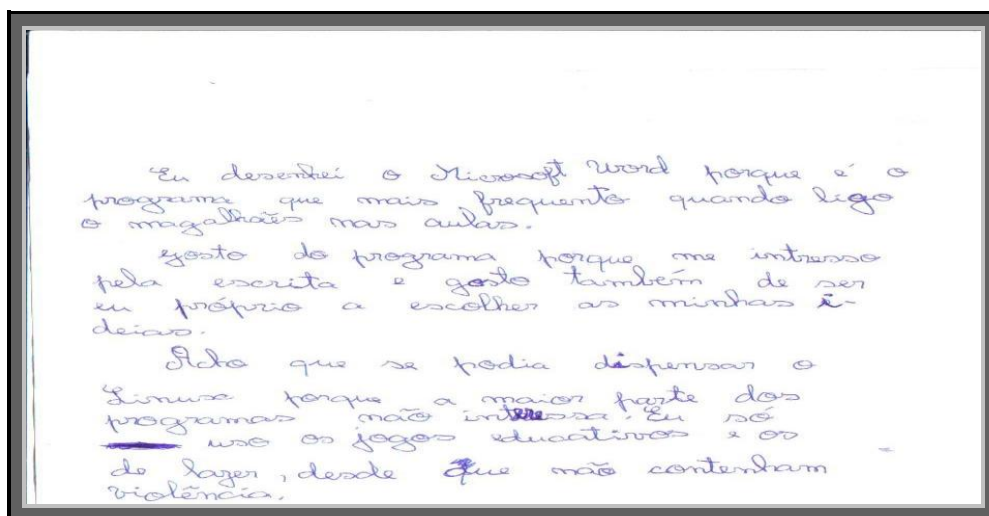 Eu desenhei o Microsoft Word porque é o
programa que mais frequento quando ligo
o magalhães nas aulas.
Gosto do programa porque me intresso
pela escrita e gosto também de ser
eu próprio a escolher as minhas i-
deias.
Acho que se podia dispensar o
Linuse porque a maior parte dos
programas não interessa. Eu só
uso os jogos educativos e os
de lazer, desde que não contenham
violência.